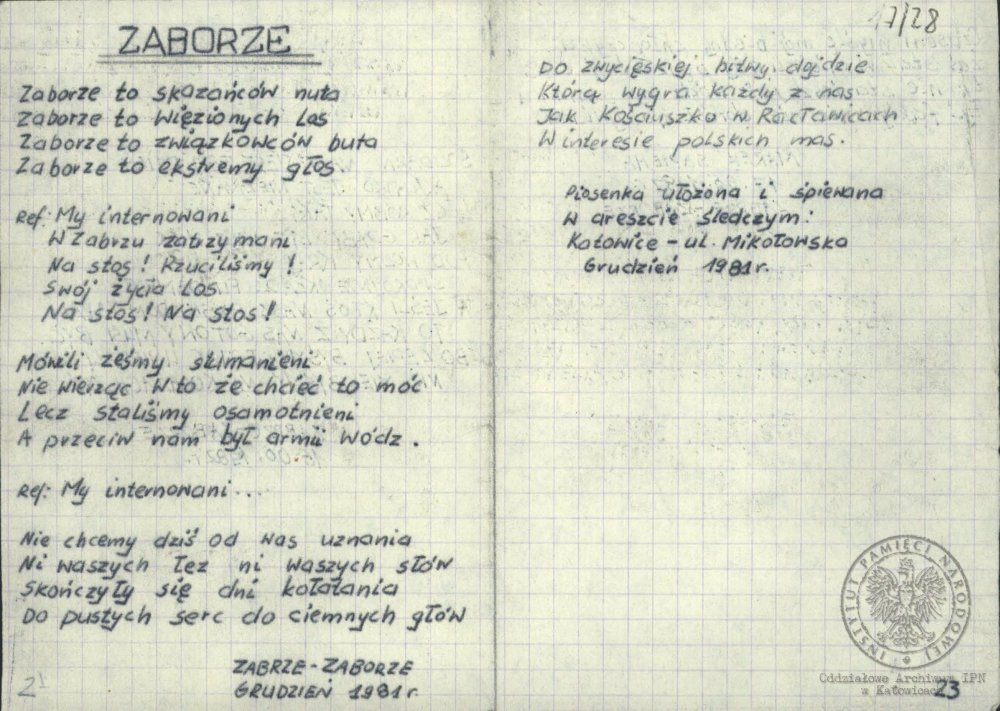 ZABORZE
Zaborze to skazańców nuta
Zaborze to więzionych los
Zaborze to związkowców buta
Zaborze to ekstremy głos.
Ref: My internowani
W Zabrzu zatrzymani
Na stos! Rzuciliśmy!
Swój życia los.
Na stos! Na stos!
Mówili żeśmy stumanieni
Nie wierząc w to że chcieć to móc
Lecz staliśmy osamotnieni
A przeciw nam był armii wódz.
Ref: My internowani...
Nie chcemy dziś od was uznania
Ni waszych łez ni waszych słów
Skończyły się dni kołatania
Do pustych serc do ciemnych głów
ZABRZE - ZABORZE
GRUDZIEŃ 1981 r.
21
17/28
Do zwycięskiej bitwy dojdzie
Którą wygra każdy z nas
Jak Kościuszko w Racławicach
W interesie polskich mas.
Piosenka ułożona i śpiewana
w areszcie śledczym:
Katowice - ul. Mikołowska
Grudzień 1981 r.
INSTYTUT PAMIĘCI NARODOWEJ
Oddziałowe Archiwum IPN
w Katowicach
23